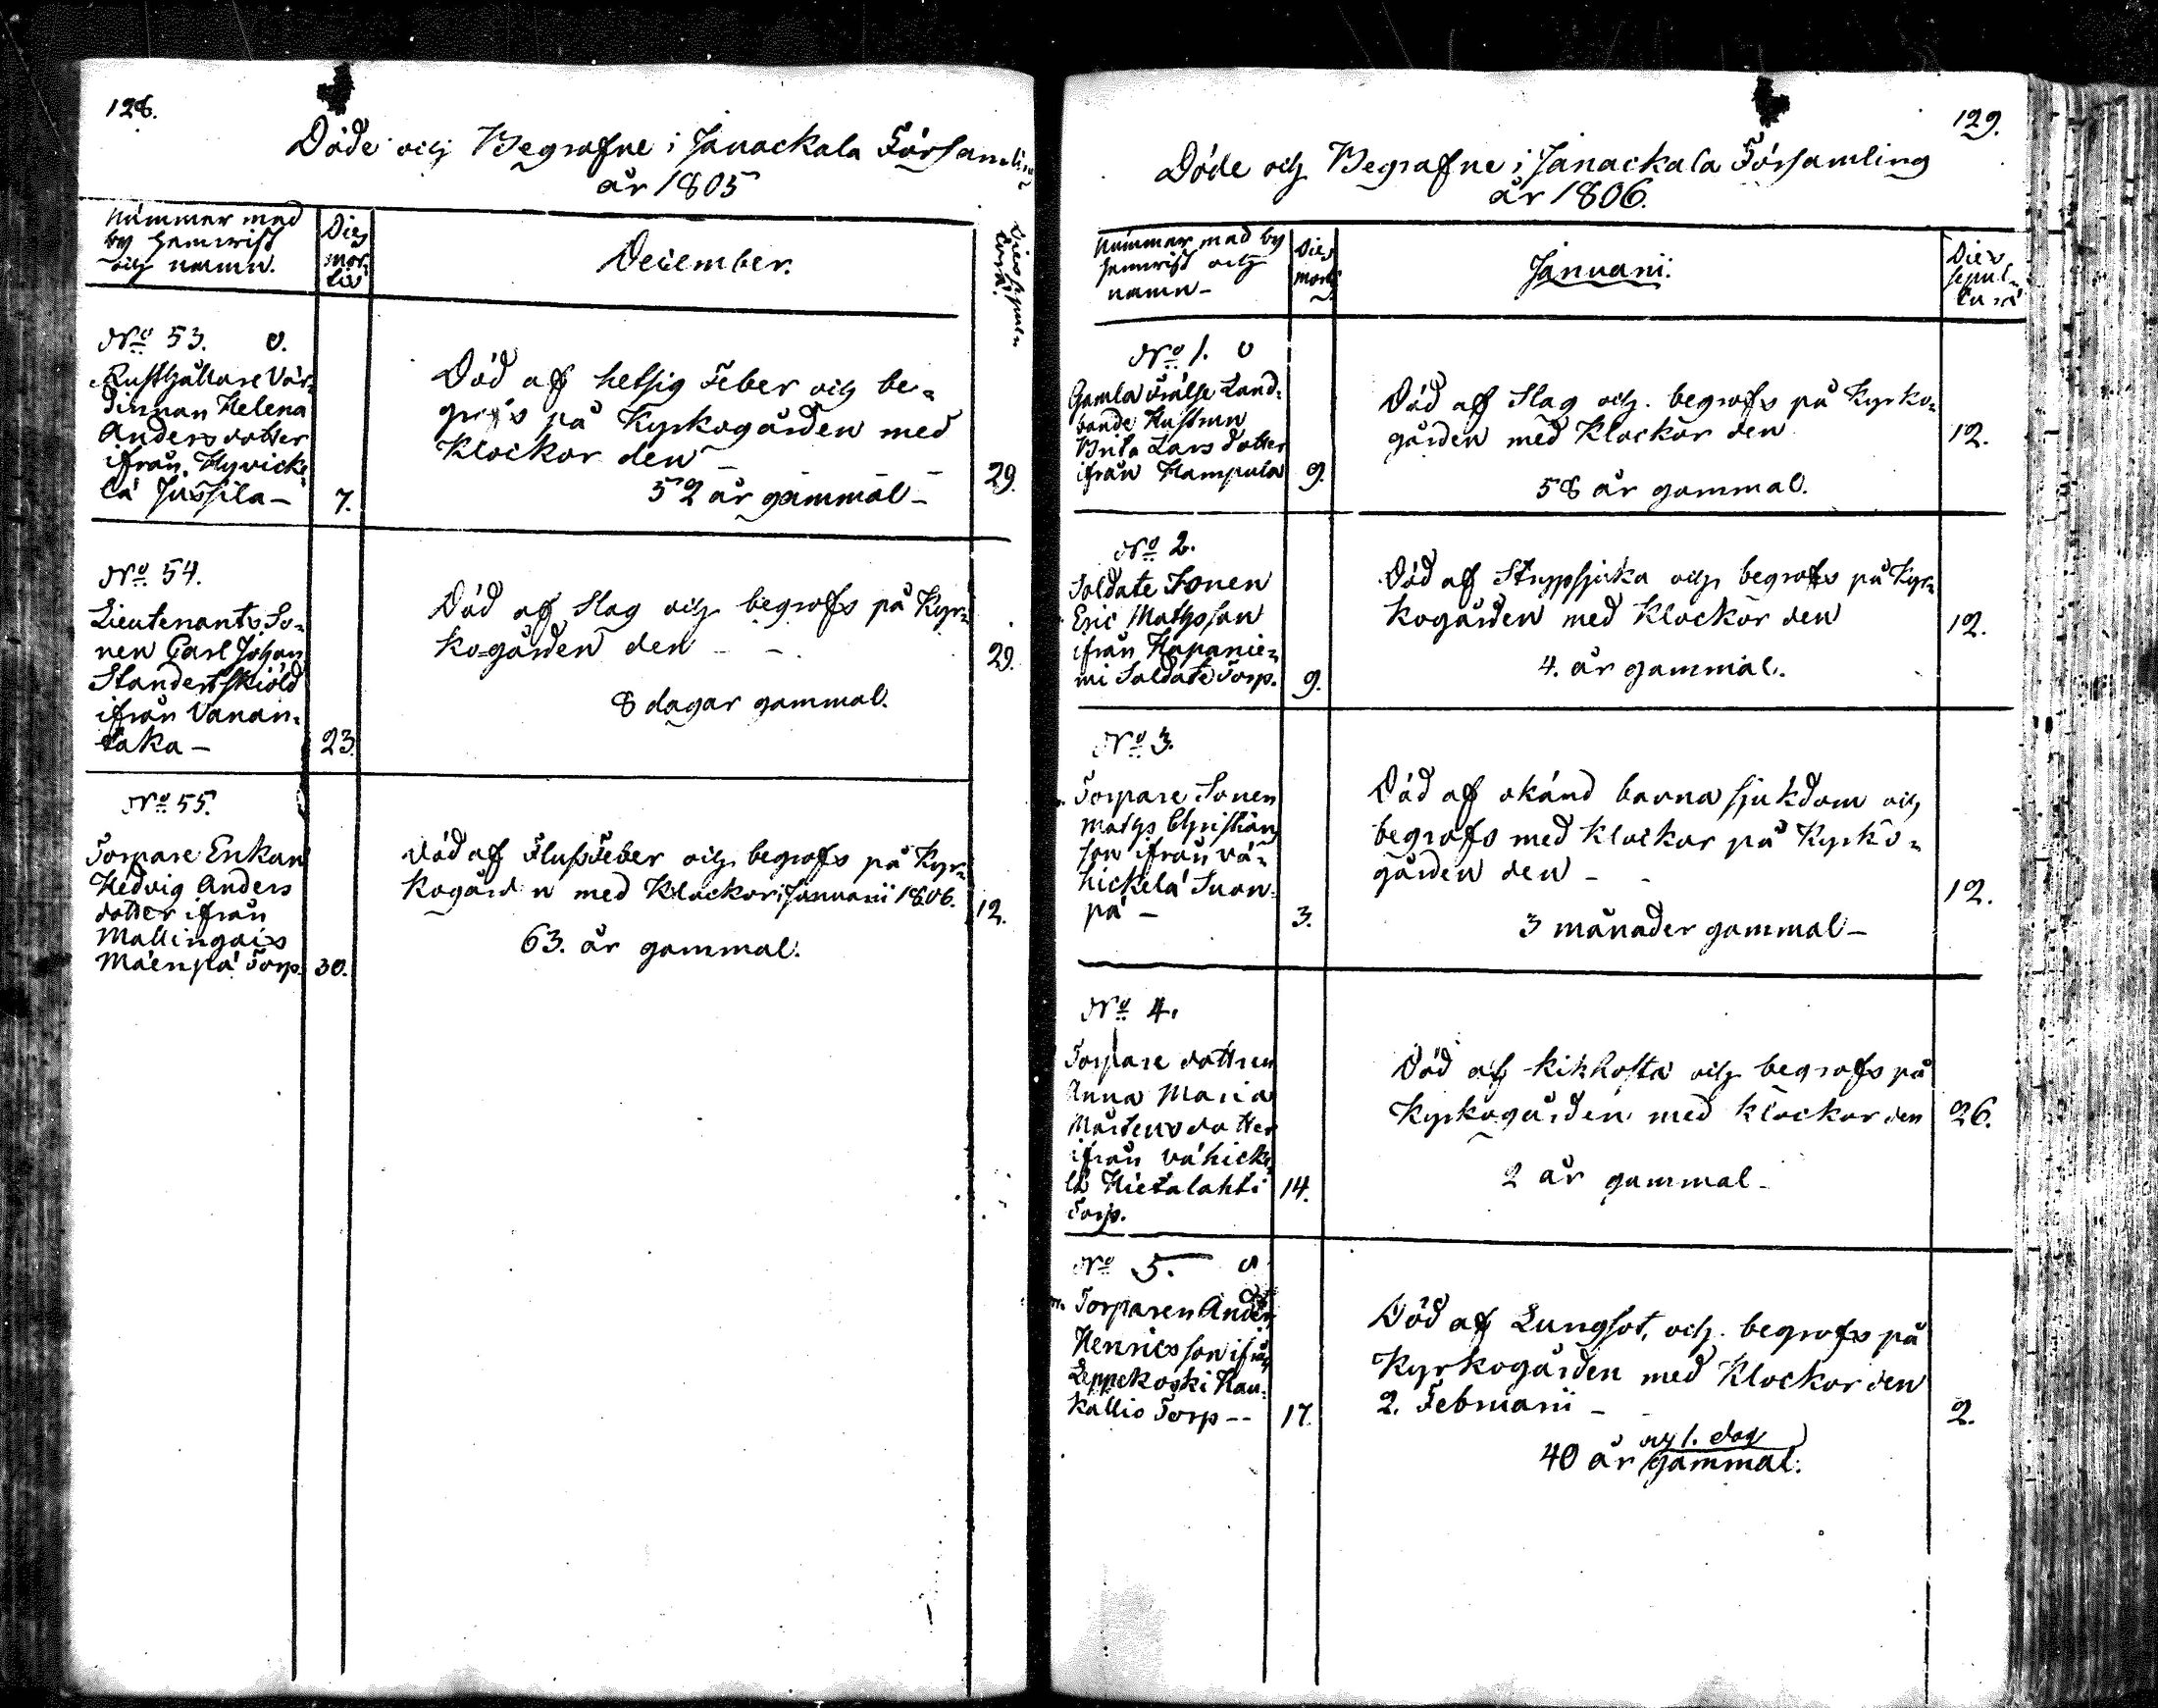 128.
Döde och Begrafne i Janackala Församling
år 1805
Nummer med
by hemvist
och namn.
Dies
mor-
tis
December.
Dies sepul-
turæ.
No 53. O.
Rusthållare Vär-
dinnan Helena
Anders dotter
ifrån Hyvicke-
lä Jussila -
7.
Död af hetsig Feber och be-
grofs på Kyrkogården med
Klockor den - - - -
52 år gammal -
29.
No 54.
Lieutenants So-
nen Carl Johan
Standertskiöld
ifrån Vanan-
taka -
23.
Död af Slag och begrofs på Kyr-
ko-gården den - -
8 dagar gammal.
29.
No 55.
Torpare Enkan
Hedvig Anders
dotter ifrån
Mallingais
Mäenpä Torp.
30.
Död af Flussfeber och begrofs på Kyr-
kogården med Klockor i Januarii 1806.
63. år gammal.
12.
129.
Döde och Begrafne i Janackala Församling
år 1806.
Nummer med by
hemvist och
namn -
Dies
mortis
Januarii.
Dies
sepul-
turæ
No 1. O
Gamla Frälse Land-
bonde Hustrun
Brita Lars dotter
ifrån Hampula
9.
Död af Slag och begrofs på Kyrko-
gården med Klockor den
58 år gammal.
12.
No 2.
Soldate Sonen
Eric Mathsson
ifrån Hapanie-
mi Soldate Torp.
9.
Död af Strypsjuka och begrofs på Kyr-
kogården med Klockor den
4. år gammal.
12.
No 3.
Torpare Sonen
Maths Christian
son ifrån Vä-
hickelä Suon-
pä -
3.
Död af okänd barna sjukdom och
begrofs med Klockor på Kyrko-
gården den - -
3 månader gammal -
12.
No 4.
Torpare dottren
Anna Maria
Mårtens dotter
ifrån Vähicke-
lä Hietalahti
Torp.
14.
Död af Kikhosta och begrofs på
Kyrkogården med Klockor den
2 år gammal -
26.
No 5. O
Torparen Anders
Henrics son ifrån
Leppekoski Kau-
kallio Torp --
17.
Död af Lungsot, och begrofs på
Kyrkogården med Klockor den
2. Februarii - -
och 1. dag
40 år gammal.
2.